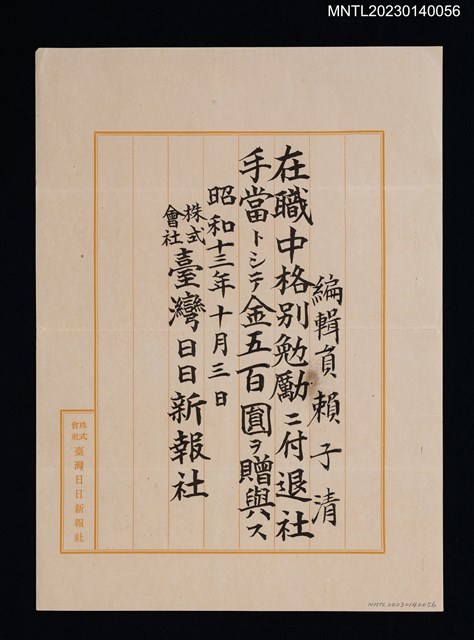 MNTL20230140056
編輯員賴子清
在職中格別勉勵ニ付退社
手當トシテ金五百圓ヲ贈與ス
昭和十三年十月三日
株式會社臺灣日日新報社
株式會社臺灣日日新報社
MNTL20230140056